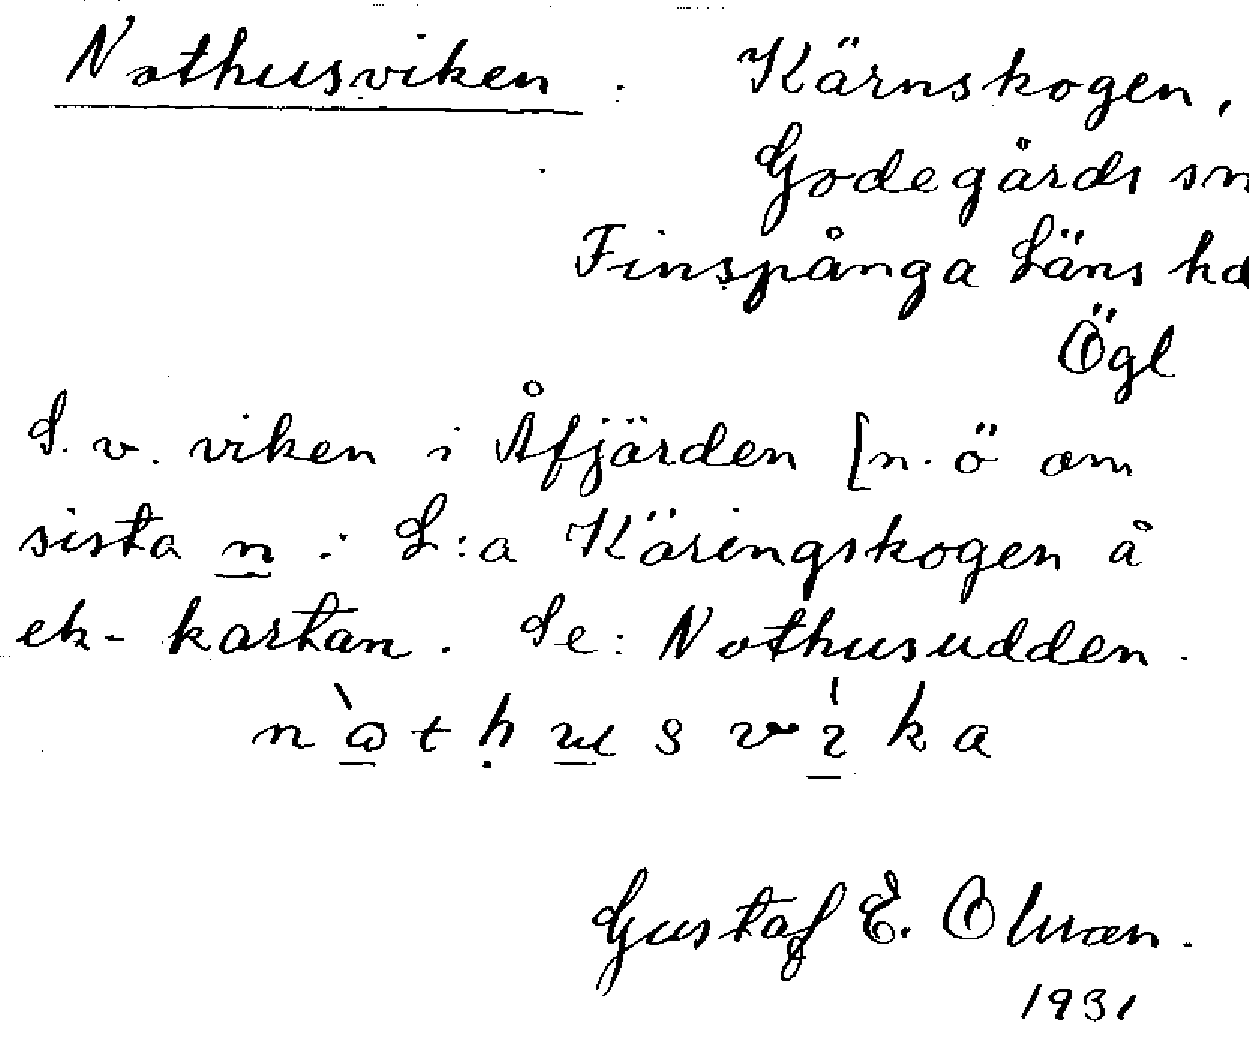 Nothusviken. Kärnskogen,
Godegårds sn
Finspånga Läns hd
Ögl
S. v. viken i Åfjärden [n. ö om
sista n i L:a Käringskogen å
ek-kartan. Se: Nothusudden.
Gustaf E. Olman.
1931